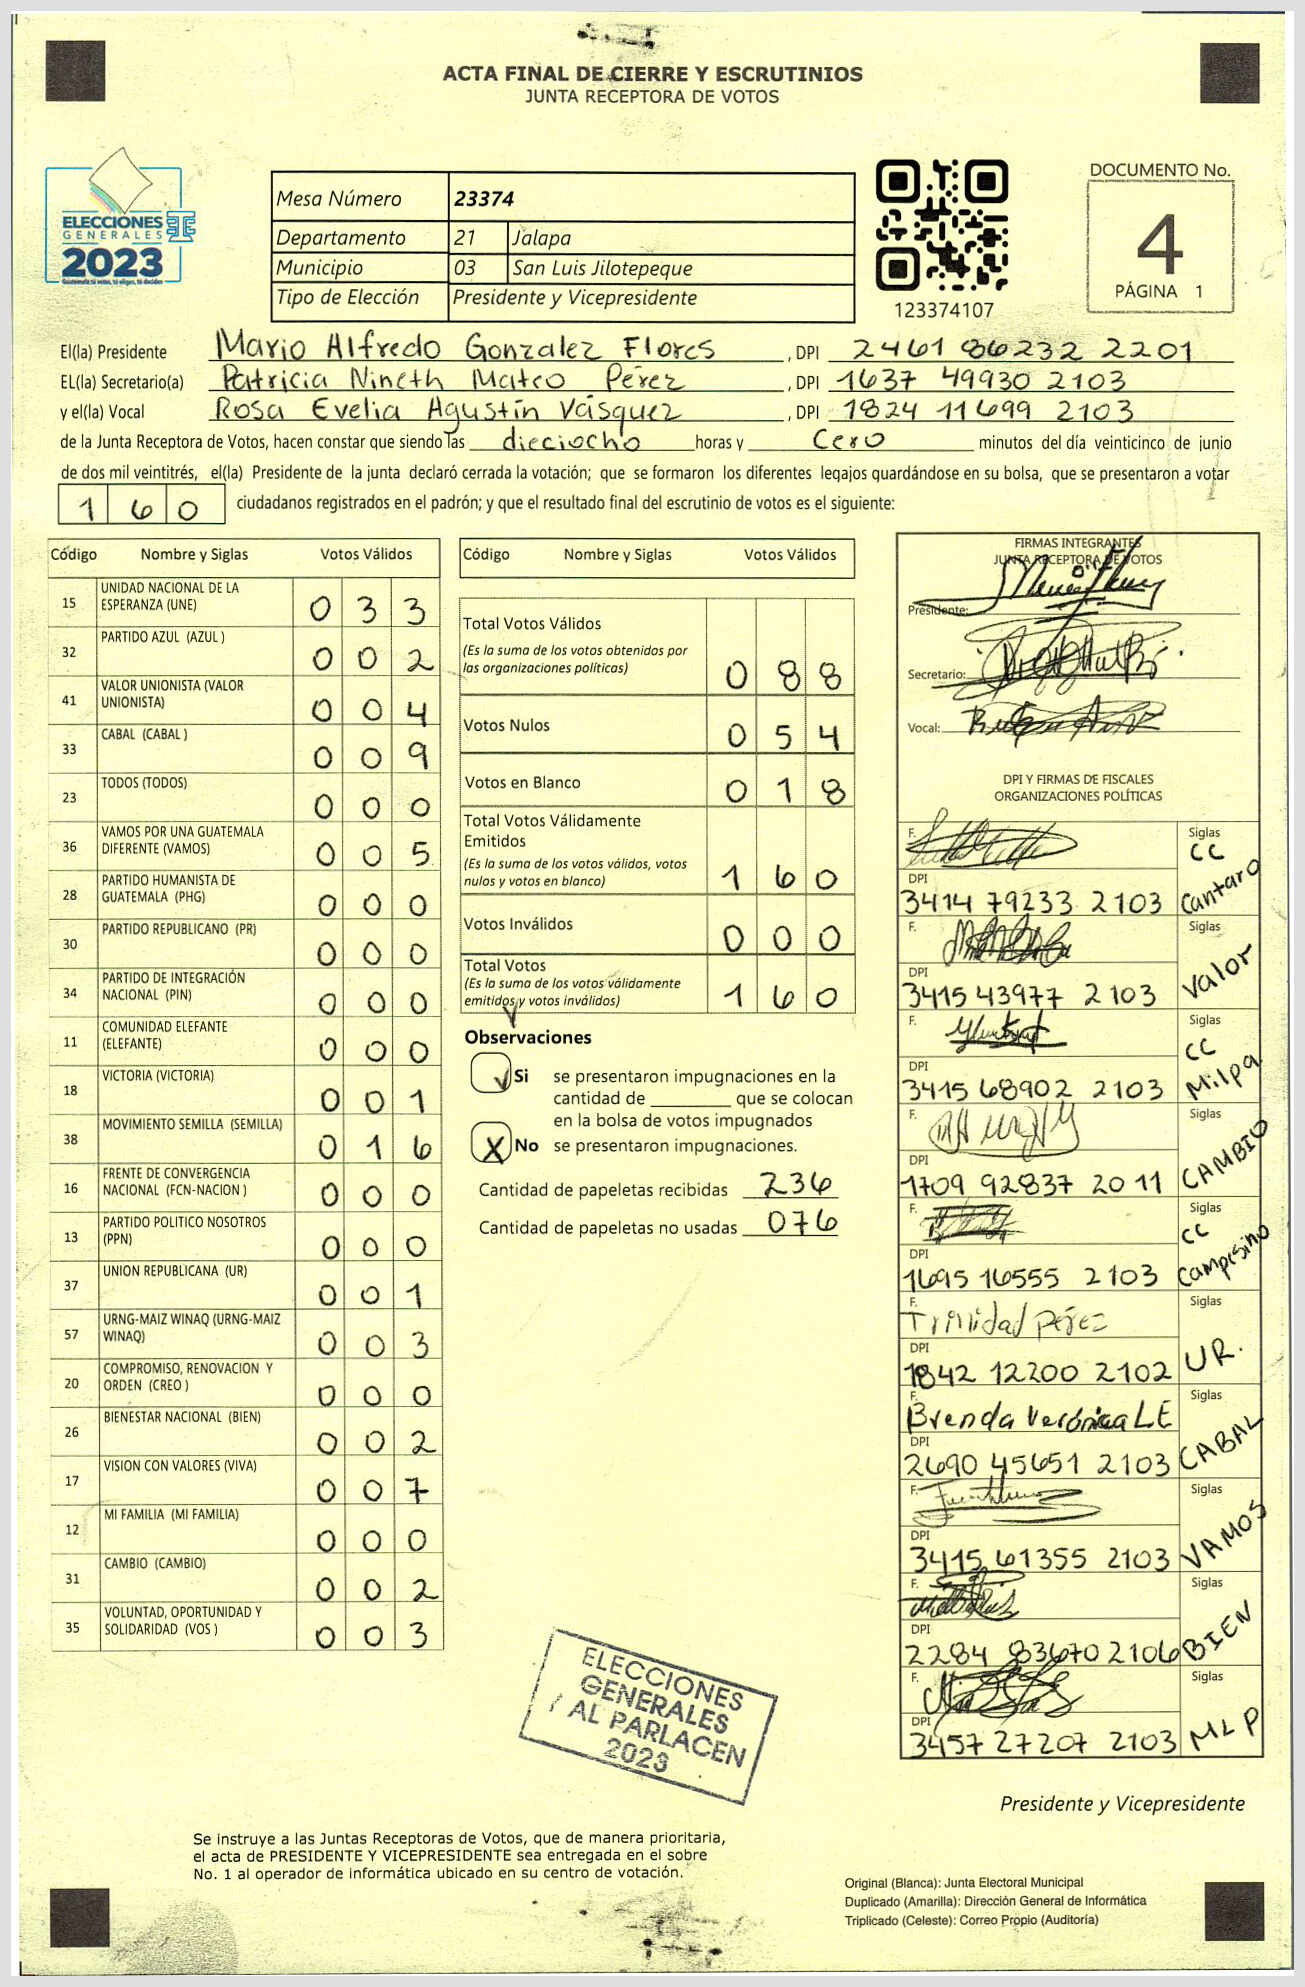 ACTA FINAL DE CIERRE Y ESCRUTINIOS
JUNTA RECEPTORA DE VOTOS
ELECCIONES
GENERALES
2023
Mesa Número 23374
Departamento 21 Jalapa
Municipio 03 San Luis Jilotepeque
Tipo de Elección Presidente y Vicepresidente
123374107
DOCUMENTO No.
4
PÁGINA 1
El(la) Presidente Mario Alfredo Gonzalez Flores, DPI 2461 86232 2201
EL(la) Secretario(a) Patricia Nineth Mateo Pérez, DPI 1637 49930 2103
y el(la) Vocal Rosa Evelia Agustín Vásquez, DPI 1824 11699 2103
de la Junta Receptora de Votos, hacen constar que siendo las dieciocho horas y cero minutos del día veinticinco de junio
de dos mil veintitrés, el(la) Presidente de la junta declaró cerrada la votación; que se formaron los diferentes legajos guardándose en su bolsa, que se presentaron a votar
160 ciudadanos registrados en el padrón; y que el resultado final del escrutinio de votos es el siguiente:
Código Nombre y Siglas Votos Válidos
15 UNIDAD NACIONAL DE LA
ESPERANZA (UNE) 033
32 PARTIDO AZUL (AZUL ) 002
41 VALOR UNIONISTA (VALOR
UNIONISTA) 004
33 CABAL (CABAL ) 009
23 TODOS (TODOS) 000
36 VAMOS POR UNA GUATEMALA
DIFERENTE (VAMOS) 005
28 PARTIDO HUMANISTA DE
GUATEMALA (PHG) 000
30 PARTIDO REPUBLICANO (PR) 000
34 PARTIDO DE INTEGRACIÓN
NACIONAL (PIN) 000
11 COMUNIDAD ELEFANTE
(ELEFANTE) 000
18 VICTORIA (VICTORIA) 001
38 MOVIMIENTO SEMILLA (SEMILLA) 016
16 FRENTE DE CONVERGENCIA
NACIONAL (FCN-NACION ) 000
13 PARTIDO POLITICO NOSOTROS
(PPN) 000
37 UNION REPUBLICANA (UR) 001
57 URNG-MAIZ WINAQ (URNG-MAIZ
WINAQ) 003
20 COMPROMISO, RENOVACION Y
ORDEN (CREO ) 000
26 BIENESTAR NACIONAL (BIEN) 002
17 VISION CON VALORES (VIVA) 007
12 MI FAMILIA (MI FAMILIA) 000
31 CAMBIO (CAMBIO) 002
35 VOLUNTAD, OPORTUNIDAD Y
SOLIDARIDAD (VOS ) 003
Código Nombre y Siglas Votos Válidos
Total Votos Válidos
(Es la suma de los votos obtenidos por
las organizaciones políticas) 088
Votos Nulos 054
Votos en Blanco 018
Total Votos Válidamente
Emitidos
(Es la suma de los votos válidos, votos
nulos y votos en blanco) 160
Votos Inválidos 000
Total Votos
(Es la suma de los votos válidamente
emitidos y votos inválidos) 160
Observaciones
Si se presentaron impugnaciones en la
cantidad de ________ que se colocan
en la bolsa de votos impugnados
X No se presentaron impugnaciones.
Cantidad de papeletas recibidas 236
Cantidad de papeletas no usadas 076
FIRMAS INTEGRANTES
JUNTA RECEPTORA DE VOTOS
Presidente:
Secretario:
Vocal:
DPI Y FIRMAS DE FISCALES
ORGANIZACIONES POLÍTICAS
F. Siglas
CC
Cantaro
DPI
3414 79233 2103
F. Siglas
Valor
DPI
3415 43977 2103
F. Siglas
CC
Milpa
DPI
3415 68902 2103
F. Siglas
CAMBIO
DPI
1709 92837 2011
F. Siglas
CC
Campesino
DPI
1695 16555 2103
F. Siglas
Trinidad pérez
UR.
DPI
1842 12200 2102
F.
Brenda Verónica LE
CABAL
DPI
2690 45651 2103
F. Siglas
VAMOS
DPI
3415 61355 2103
F. Siglas
BIEN
DPI
2284 83670 2106
F. Siglas
MLP
DPI
3457 27207 2103
ELECCIONES
GENERALES
AL PARLACEN
2023
Presidente y Vicepresidente
Se instruye a las Juntas Receptoras de Votos, que de manera prioritaria,
el acta de PRESIDENTE Y VICEPRESIDENTE sea entregada en el sobre
No. 1 al operador de informática ubicado en su centro de votación.
Original (Blanca): Junta Electoral Municipal
Duplicado (Amarilla): Dirección General de Informática
Triplicado (Celeste): Correo Propio (Auditoría)